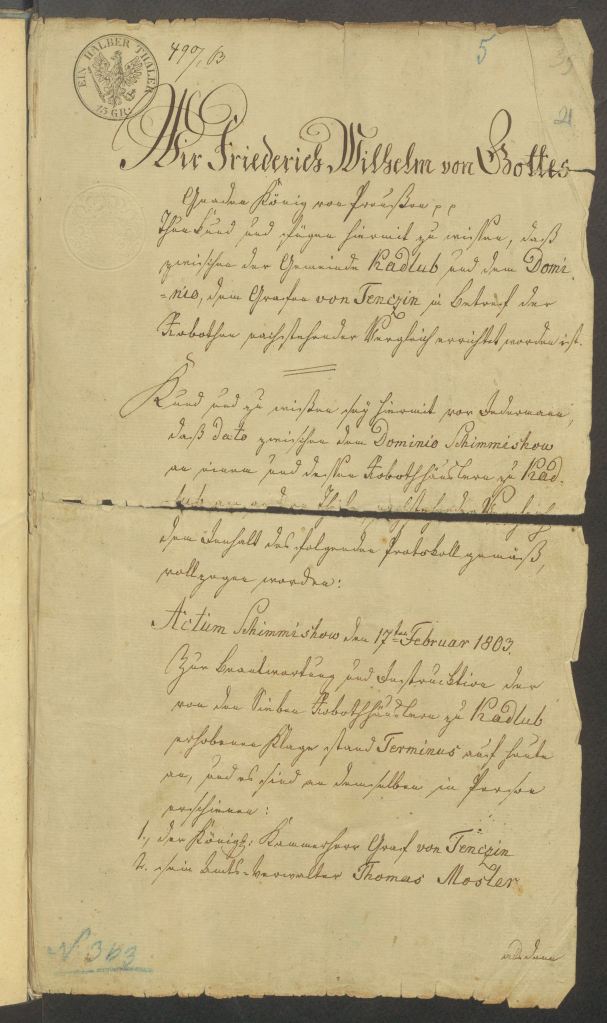 EIN HALBER THALER
15 GR:
490/63
5
21
Wir Friederich Wilhelm von Gottes
Gnaden König von Preußen
Thun kund und fügen hiermit zu wissen, daß
zwischen der Gemeinde Kadlub und dem Domi-
=nio, dem Grafen von Tenczin in Betref der
Robothen nachstehender Vergleich errichtet worden ist.
Kund und zu wißen sey hiermit vor Jedermann,
daß dato zwischen dem Dominio Schimmishow
an einem und dessen Robothhäuslern zu Kad-
lub am andern Theil
dem Innhalt des folgenden Protokoll gemäß,
vollzogen worden:
Actum Schimmishow den 17ten Februar 1803.
Zur Beantwortung und Instruktion der
von den Sieben Robothhäuslern zu Kadlub
erhobenen Klage stand Terminus auf heute
an, und es sind in demselben in Person
erschienen:
1., der Königl: Kammerherr Graf von Tenczin
2. sein Amts-Verwalter Thomas Mosler
N 363